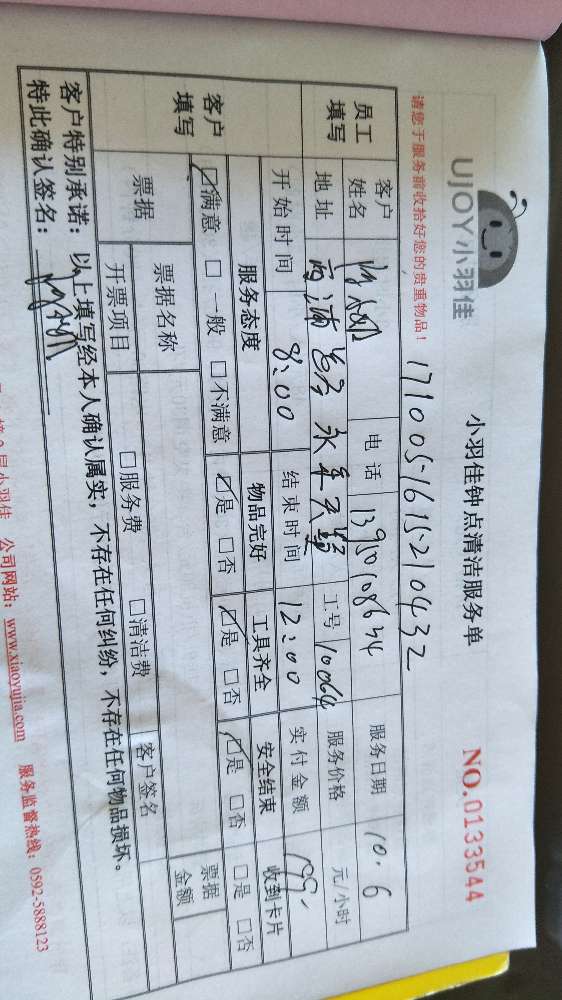 UJOY小羽佳
小羽佳钟点清洁服务单
NO.0133544
请您于服务前收拾好您的贵重物品！
171005161521 0432
员工填写
客户姓名
电话 13950108634
服务日期 10.6
地址
工号 10064
服务价格 元/小时
开始时间 8:00
结束时间 12:00
实付金额
客户填写
服务态度 物品完好 工具齐全 安全结束 收到卡片
☑满意 □一般 □不满意 ☑是 □否 ☑是 □否 ☑是 □否 □是 □否
票据
票据名称
票据金额
开票项目 □服务费 □清洁费 客户签名
客户特别承诺：以上填写经本人确认属实，不存在任何纠纷，不存在任何物品损坏。
特此确认签名：
小羽佳 公司网站：www.xiaoyujia.com 服务监督热线：0592-5888123